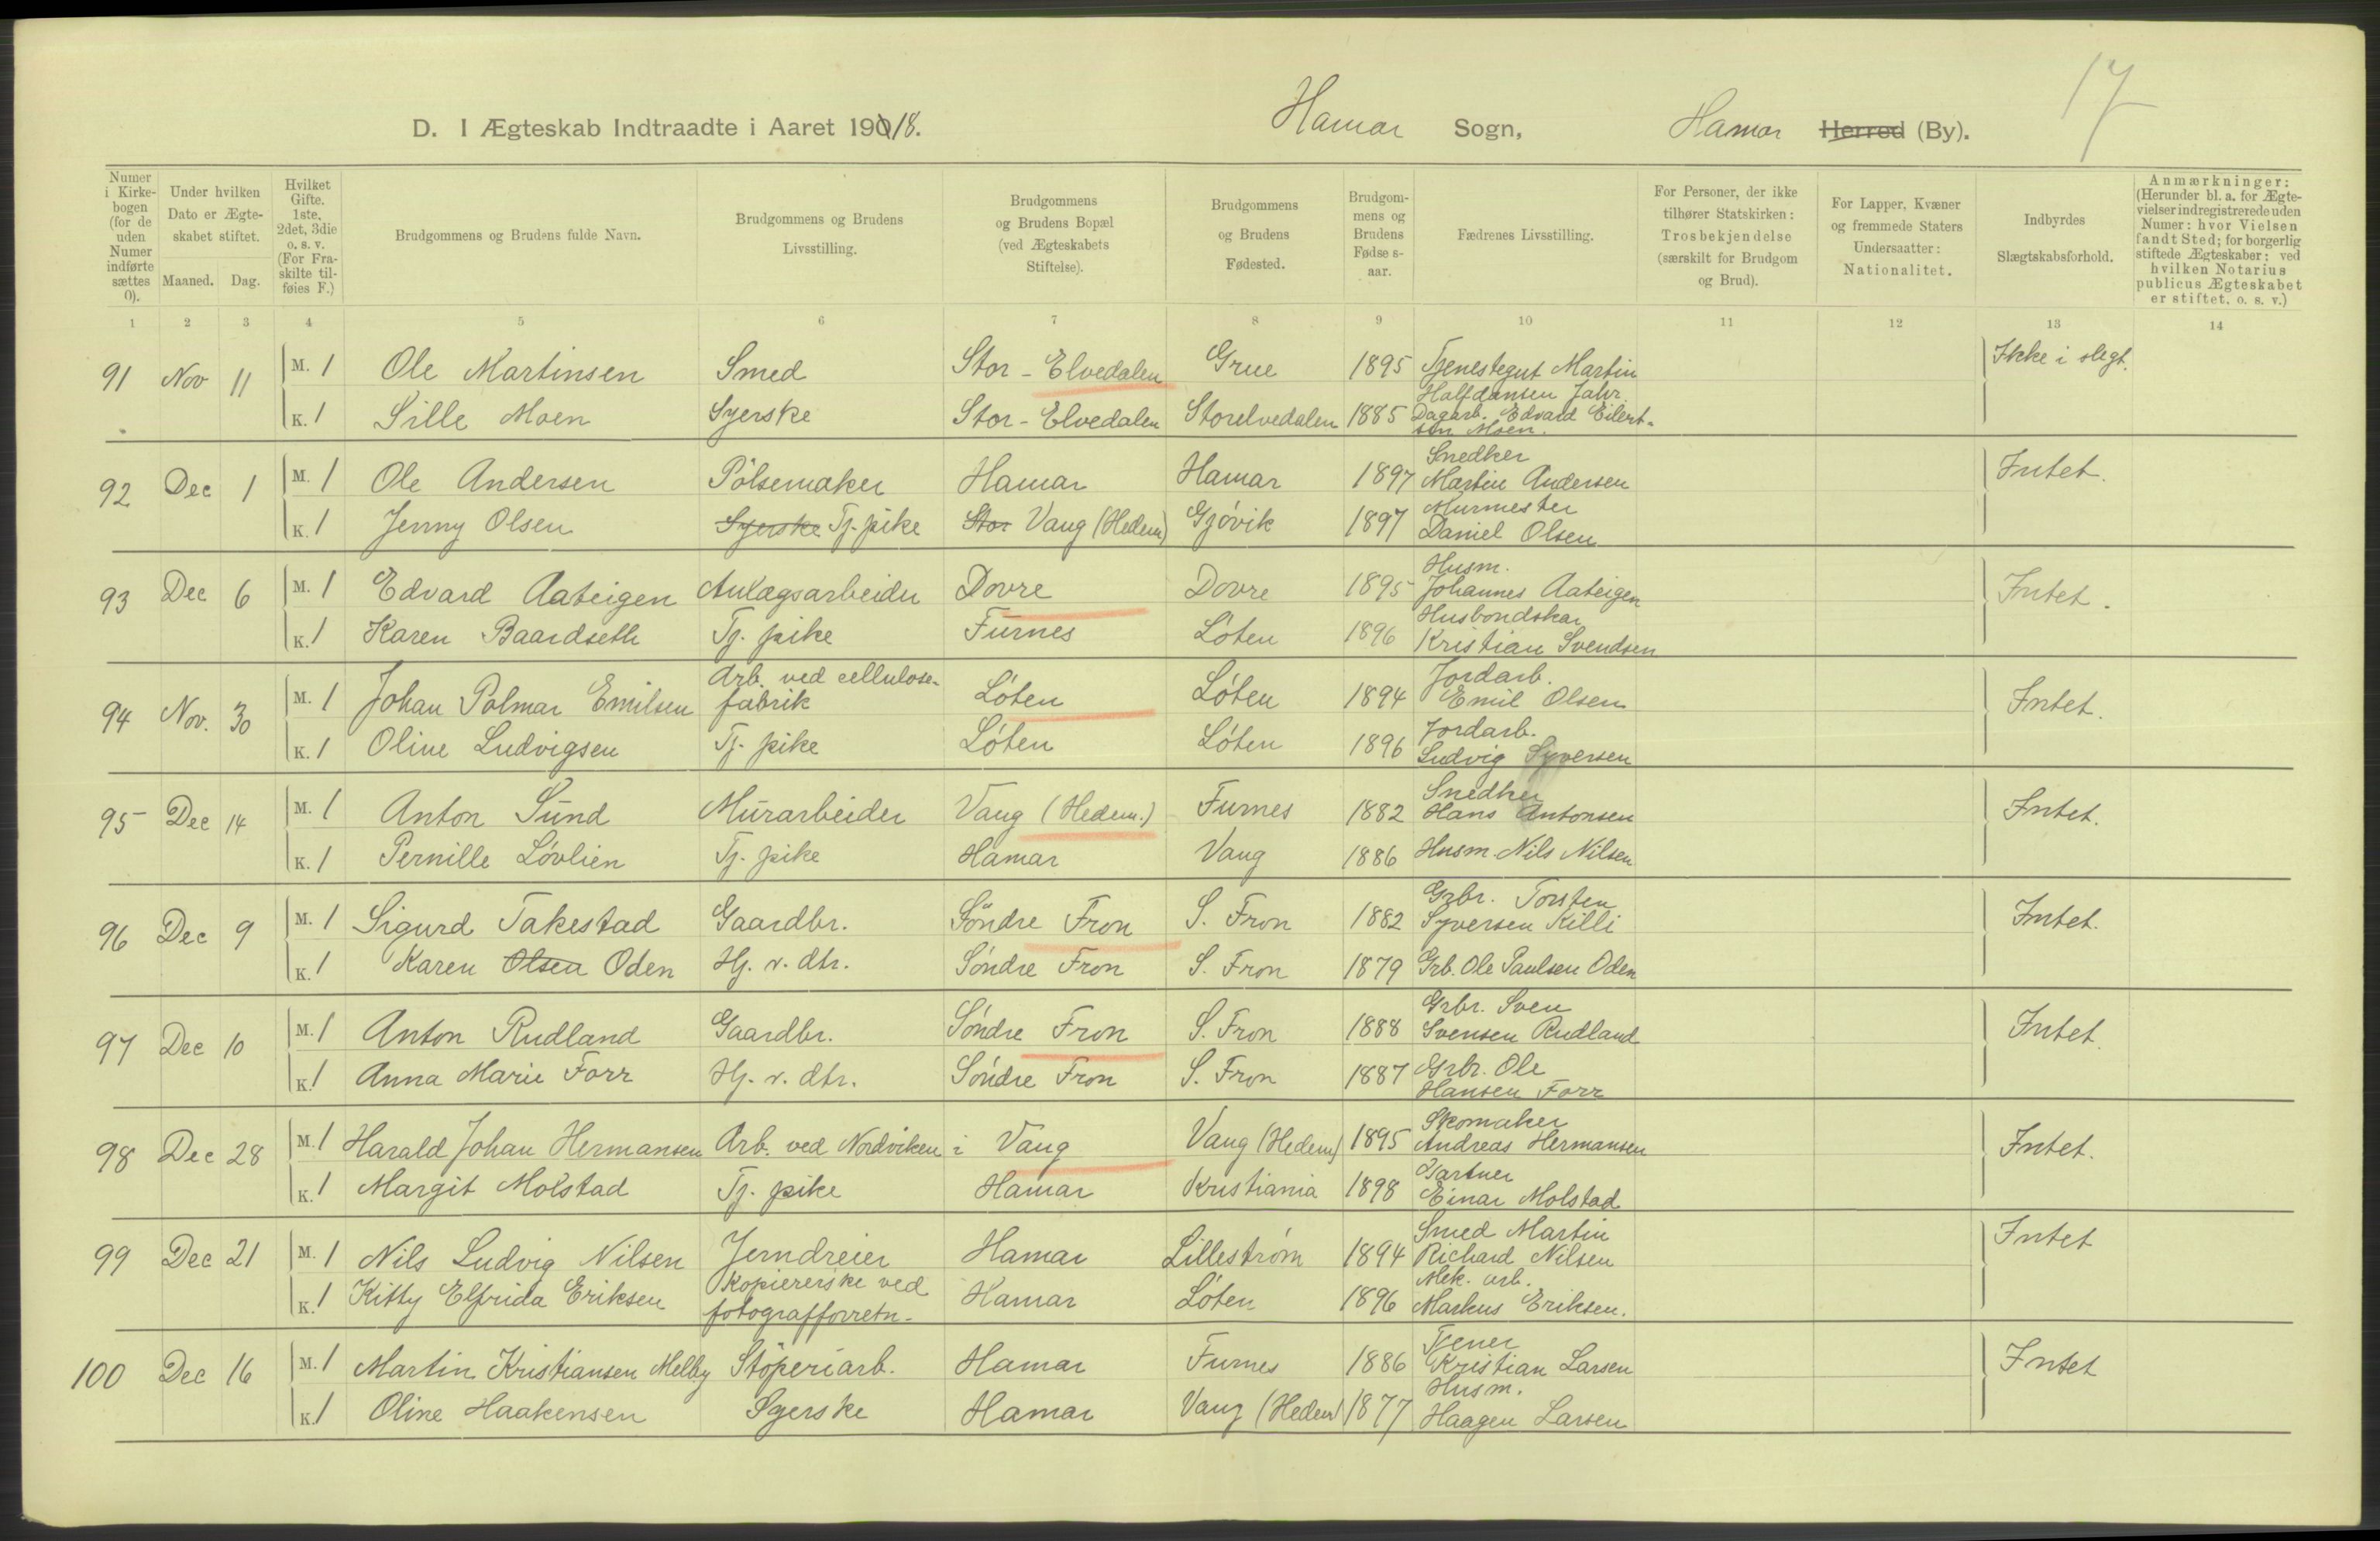 17
D. I Ægteskab Indtraadte i Aaret 19018. Hamar Sogn, Hamar Herred (By).
Numer i Kirkebogen (for de uden Numer indførte sættes 0). Under hvilken Dato er Ægteskabet stiftet. Maaned. Dag. Hvilket Gifte. 1ste, 2det, 3die o. s. v. (For Fraskilte tilføies F.) Brudgommens og Brudens fulde Navn. Brudgommens og Brudens Livsstilling. Brudgommens og Brudens Bopæl (ved Ægteskabets Stiftelse). Brudgommens og Brudens Fødested. Brudgommens og Brudens Fødselsaar. Fædrenes Livsstilling. For Personer, der ikke tilhører Statskirken: Trosbekjendelse (særskilt for Brudgom og Brud). For Lapper, Kvæner og fremmede Staters Undersaatter: Nationalitet. Indbyrdes Slægtskabsforhold. Anmærkninger: (Herunder bl. a. for Ægtevielser indregistrerede uden Numer: hvor Vielsen fandt Sted; for borgerlig stiftede Ægteskaber: ved hvilken Notarius publicus Ægteskabet er stiftet. o. s. v.)
1 2 3 4 5 6 7 8 9 10 11 12 13 14
91 Nov 11 M. 1 Ole Martinsen Smed Stor-Elvedalen Grue 1895 Tjenestegut Martin Halfdansen Jahr. Ikke i slegt.
K. 1 Sille Moen Syerske Stor-Elvedalen Storelvedalen 1885 Dagarb. Edvard Eilertsen Moen.
92 Dec 1 M. 1 Ole Andersen Pølsemaker Hamar Hamar 1897 Snedker Martin Andersen Intet.
K. 1 Jenny Olsen Syerske Tj. pike Stor Vang (Hedem) Gjøvik 1897 Murmester Daniel Olsen
93 Dec 6 M. 1 Edvard Aateigen Anlægsarbeider Dovre Dovre 1895 Husm. Johannes Aateigen Intet.
K. 1 Karen Baardseth Tj. pike Furnes Løten 1896 Husbondskar Kristian Svendsen
94 Nov. 30 M. 1 Johan Palmar Emilsen Arb. ved cellulosefabrik Løten Løten 1894 Jordarb. Emil Olsen Intet.
K. 1 Oline Ludvigsen Tj. pike Løten Løten 1896 Jordarb. Ludvig Syversen
95 Dec 14 M. 1 Anton Sund Murarbeider Vang (Hedem.) Furnes 1882 Snedker Hans Antonsen Intet.
K. 1 Pernille Løvlien Tj. pike Hamar Vang 1886 Husm. Nils Nilsen
96 Dec 9 M. 1 Sigurd Takestad Gaardbr. Søndre Fron S. Fron 1882 Grbr. Torsten Syversen Killi Intet.
K. 1 Karen Olsen Oden Hj. v. dtr. Søndre Fron S. Fron 1879 Grb. Ole Paulsen Oden
97 Dec 10 M. 1 Anton Rudland Gaardbr. Søndre Fron S. Fron 1888 Grbr. Sven Svensen Rudland Intet.
K. 1 Anna Marie Forr Hj. v. dtr. Søndre Fron S. Fron 1887 Grbr. Ole Hansen Forr
98 Dec 28 M. 1 Harald Johan Hermansen Arb. ved Nordviken i Vang Vang (Hedem) 1895 Skomaker Andreas Hermansen Intet.
K. 1 Margit Molstad Tj. pike Hamar Kristiania 1898 Gartner Einar Molstad
99 Dec 21 M. 1 Nils Ludvig Nilsen Jerndreier Hamar Lillestrøm 1894 Smed Martin Richard Nilsen Intet
K. 1 Kitty Elfrida Eriksen Kopiererske ved fotografforretn. Hamar Løten 1896 Mek. arb. Markus Eriksen.
100 Dec 16 M. 1 Martin Kristiansen Melby Støperiarb. Hamar Furnes 1886 Tjener Kristian Larsen Intet
K. 1 Oline Haakensen Syerske Hamar Vang (Hedem) 1877 Husm. Haagen Larsen